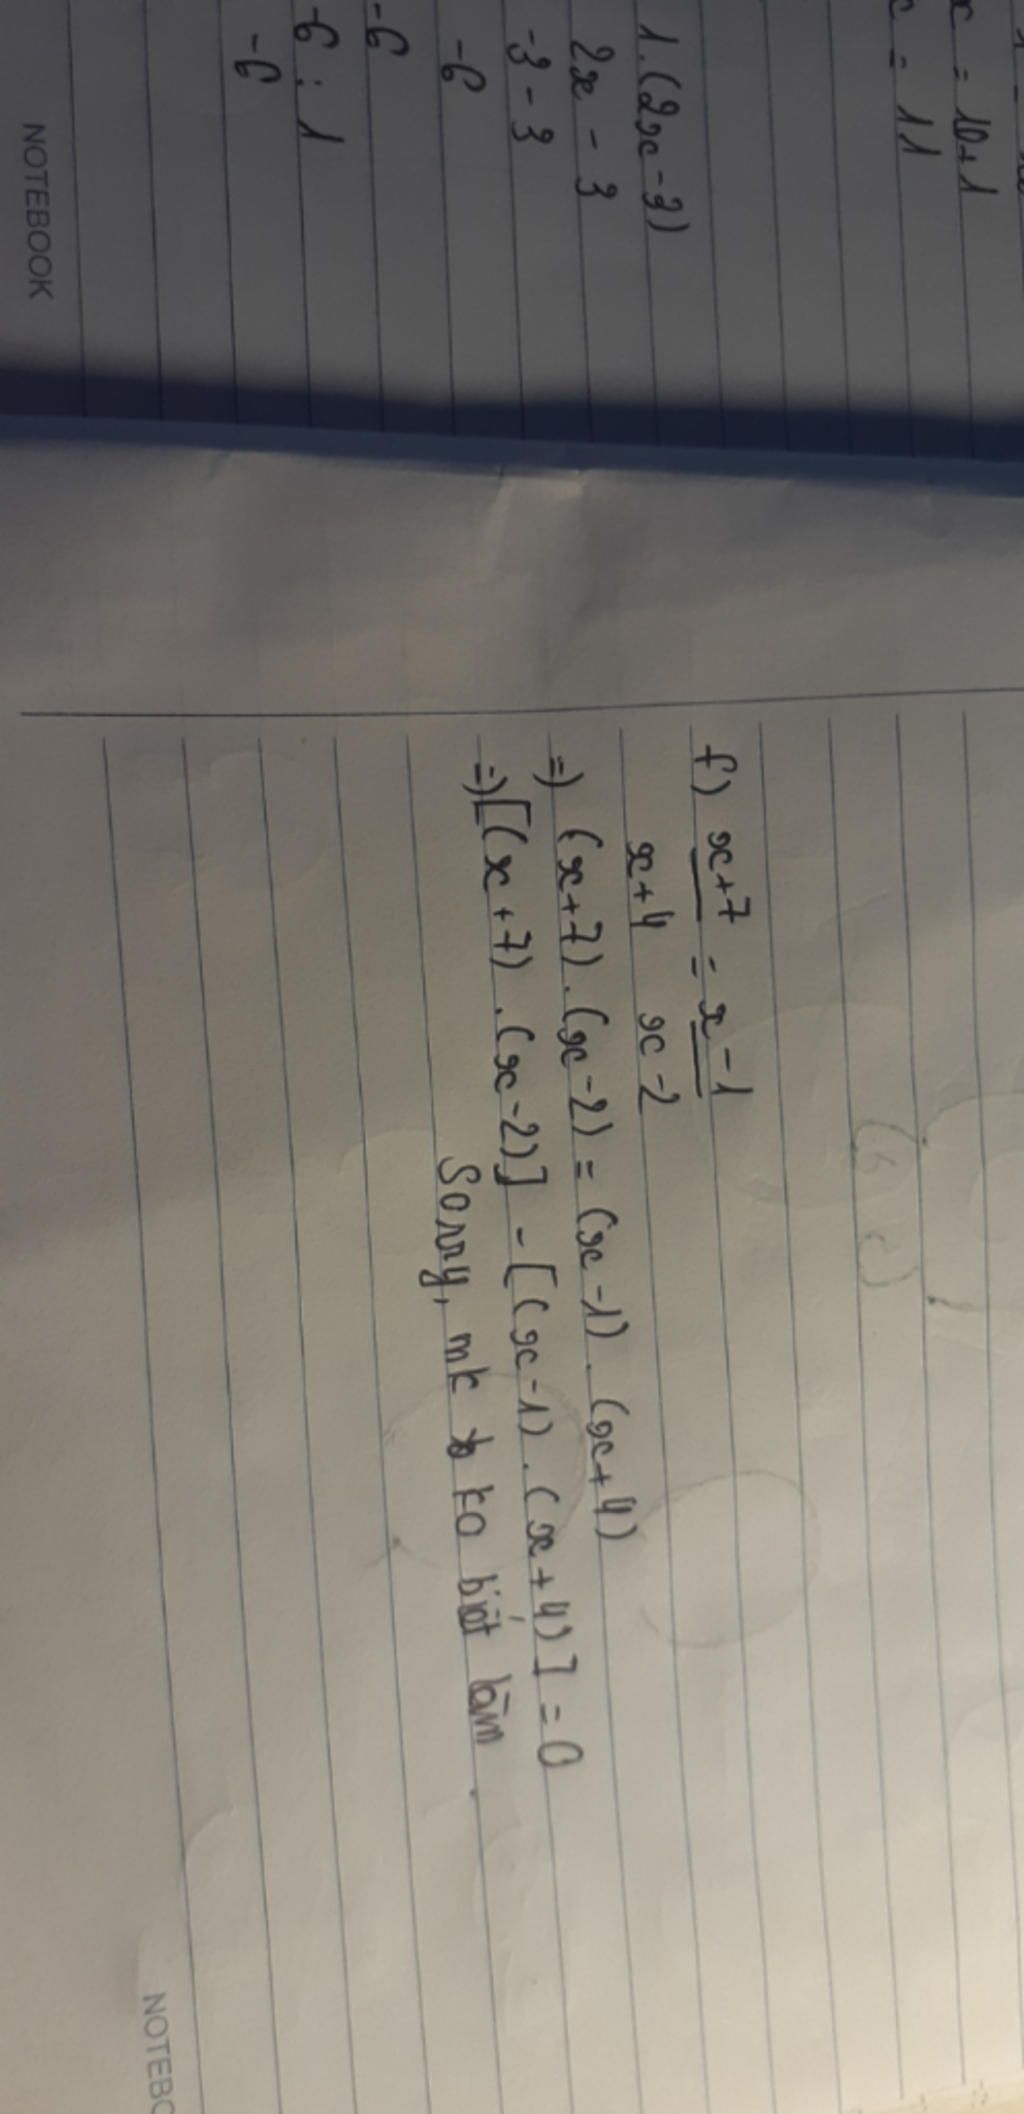 x = 10+1
= 11
1.(2x-3)
2x - 3
-3 - 3
-6
-6
-6 : 1
-6
NOTEBOOK
f) x+7 = x-1
x+4 x-2
=) (x+7).(x-2) = (x-1).(x+4)
=) [(x+7).(x-2)] - [(x-1).(x+4)] = 0
Sorry, mk ko biết làm.
NOTEBO